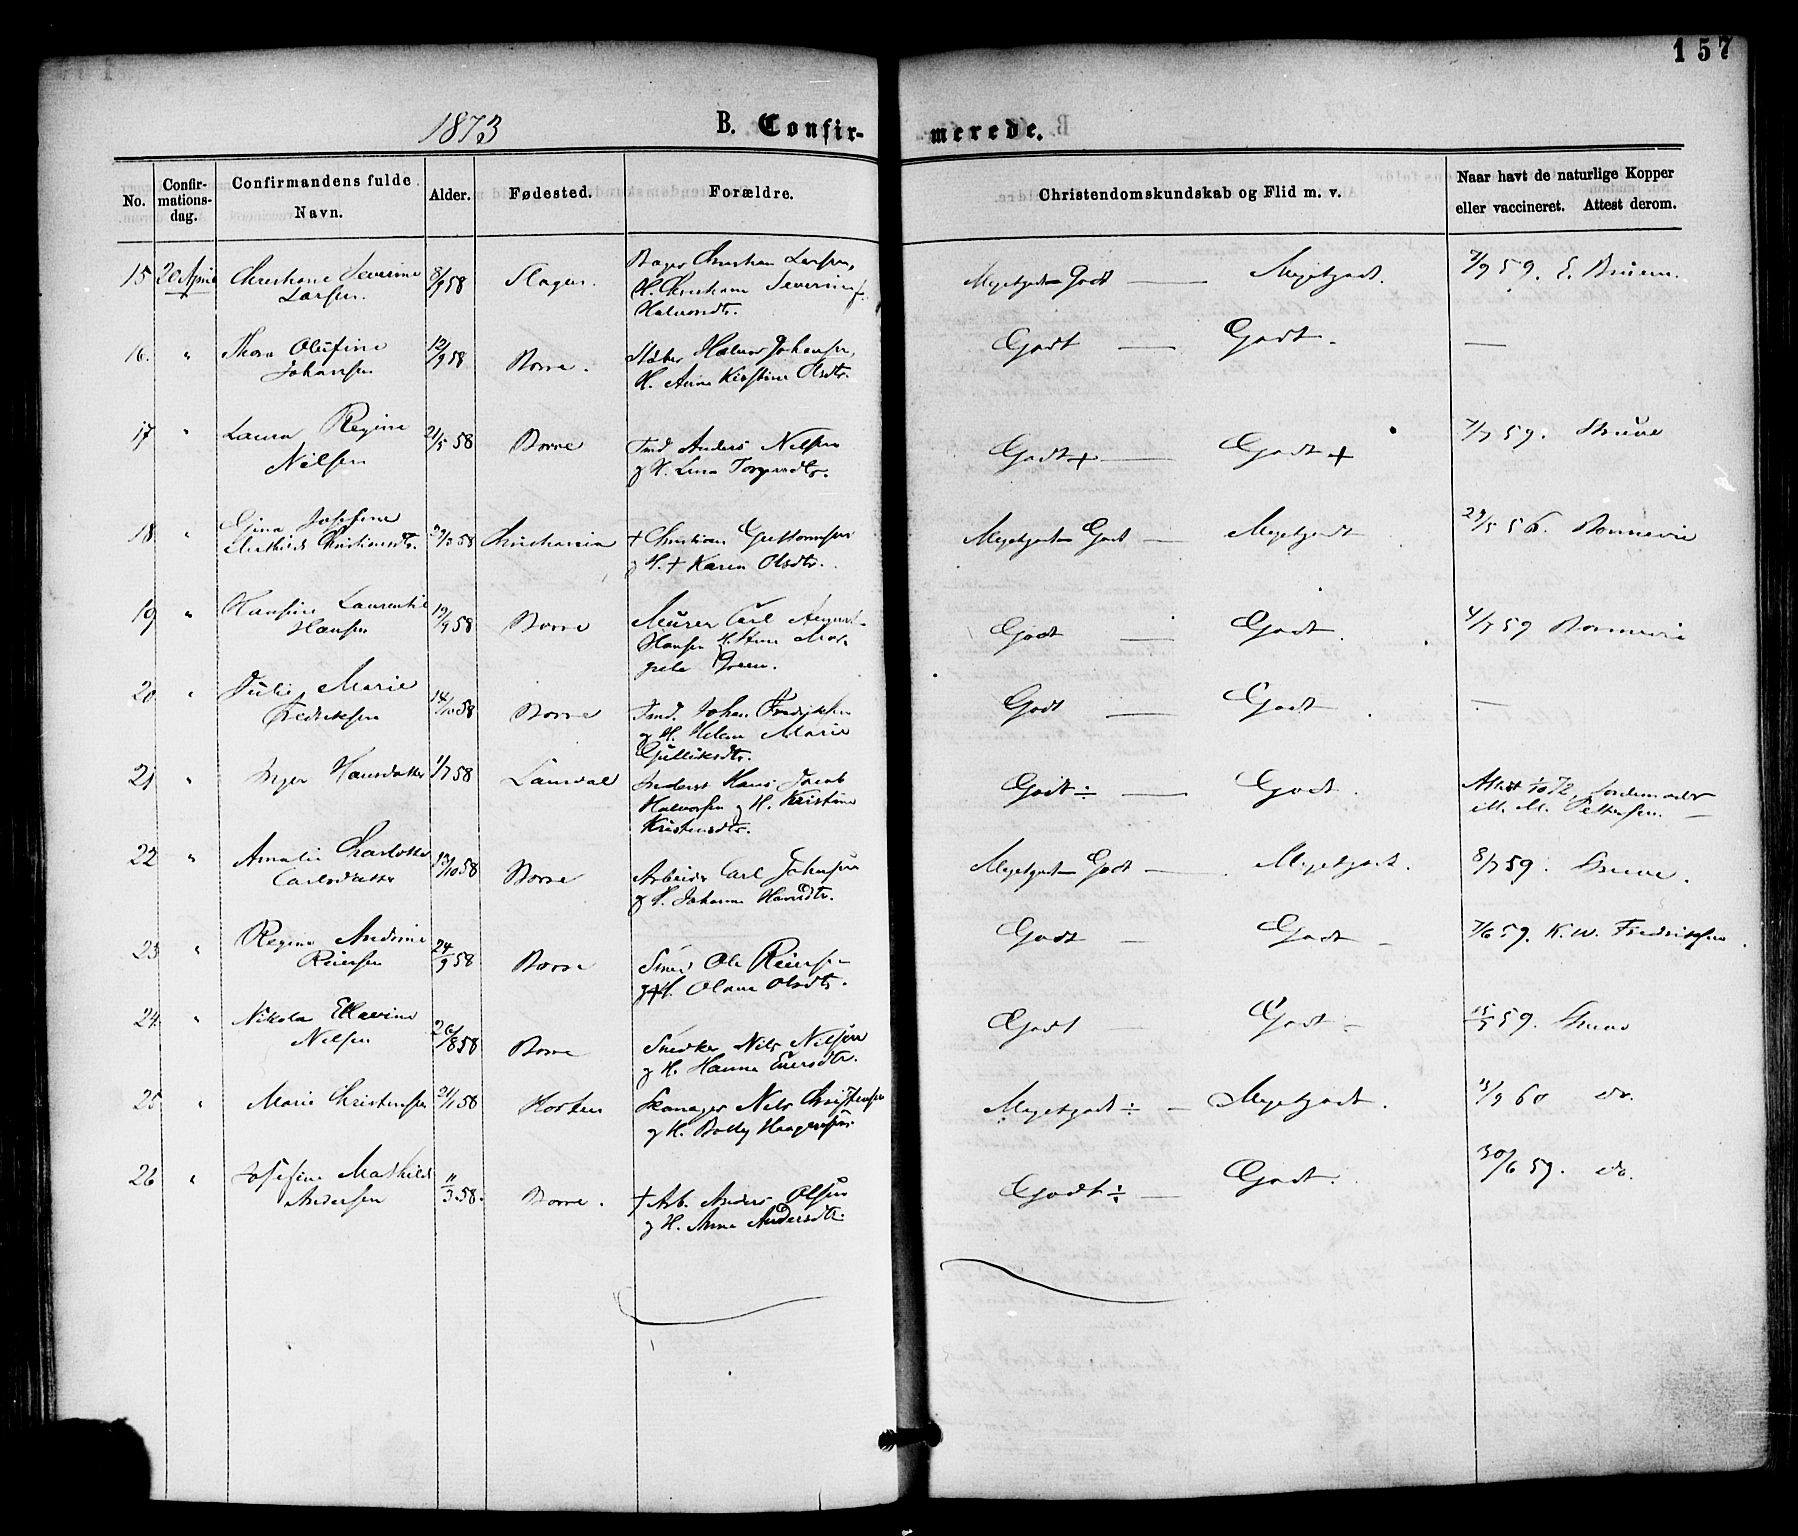 157
1873
B. Confir- merede.
No.
Confir-
mations-
dag.
Confirmandens fulde
Navn.
Alder.
Fødested.
Forældre.
Christendomskundskab og Flid m. v.
Naar havt de naturlige Kopper
eller vaccineret. Attest derom.
15 20 April Christiane Severine
Larsen.
8/9 58 Slagen.
Bager Christian Larsen,
H. Christiane Severine
Halvorsdtr.
Megetgodt-Godt — Megetgodt. 7/9 59.
16. " Thora Olufine
Johansen
12/9 58 Borre.
Halvor Johansen,
H. Anne Kirstine Olsdtr.
Godt — Godt. —
17 " Laura Regine
Nilsen
21/5 58 Borre
Tmd. Anders Nilsen
og H. Lina
Godt+ — Godt+ 7/7 59. Struve
18 " Gina Josefine
Mathilde Christiansdtr.
58 Christiania
+ Christian
og H. + Karen Olsdtr.
Megetgodt-Godt — Megetgodt 29/5 56. Bonnevie
19 " Hansine Laurentie
Hansen
19/9 58 Borre
Murer Carl August
Hansen
Godt — Godt. 4/7 59 Bonnevie
20 " Julie Marie
Fredriksen
14/10 58 Borre
Tmd. Johan Fredriksen
og H. Helene Marie
Gulliksdtr.
Godt — Godt. —
21 " Inger Hansdatter 1/7 58 Laurdal
Inderst Hans Jacob
Halvorsen og H. Kristine
Kristensdtr.
Godt ÷ — Godt. Attest 1/10 72 Jordemoder
M. M. Pettersen. —
22 " Amalie Charlotte
Carlsdatter
13/10 58 Borre
Arbeider Carl Johnsen
og H. Johanne
Megetgodt-Godt — Megetgodt. 8/7 59. Struve.
23 " Regine Andrine
Reiersen
24/9 58 Borre
Smed Ole Reiersen
og H. Olava Olsdtr.
Godt — Godt — 7/6 59. K. W. Fredriksen.
24. " Nikola Ellevine
Nilsen
26/8 58 Borre
Snedker Nils Nilsen
og H. Hanna Eversdtr.
Godt — Godt — 15/5 59. Struve
25 " Marie Christensen 21/1 58 Horten
Nils Christensen
og H. Bolly Haagensen.
Megetgodt ÷ — Megetgodt. 60 do.
26 " Josefine Mathilde
Andersen
11/3 58. Borre.
+ Arb. Anders Olsen
og H. Anne Andersdtr.
Godt ÷ — Godt. 30/6 59. do.